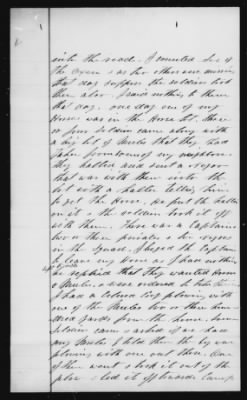 into the road. I counted six of
the oxen & as two others were missing
that day suppose the soldiers took
them also. I said nothing to them
that day. one day one of my
Horses was in the Horse lot, three
or four Soldiers came along with
a big lot of Mules that they had
taken from some of my neighbors
they halted and sent a negro
that was with them into the
lot with a halter telling him
to get the Horse, he put the halter
on it & the soldiers took it off
with them. There was a Captain
two or three privates & two negroes
in the squad. I begged the Captain
to leave my Horse as I had nothing
he replied that they wanted Horses
& Mules & were ordered to take them
I had a colored boy plowing with
one of the Mules two or three hun
dred yards from the house. two
Soldiers came & asked if we had
any Mules I told them the boy was
plowing with one out there. One
of them went & took it out of the
plow & led it off towards Camp